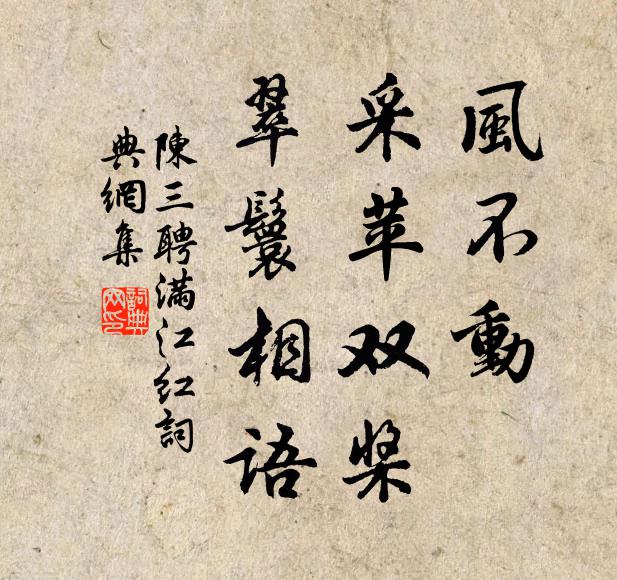 風不動
采苹双桨
翠鬟相语
陳三聘满江红詞
典網集
詞典
网印